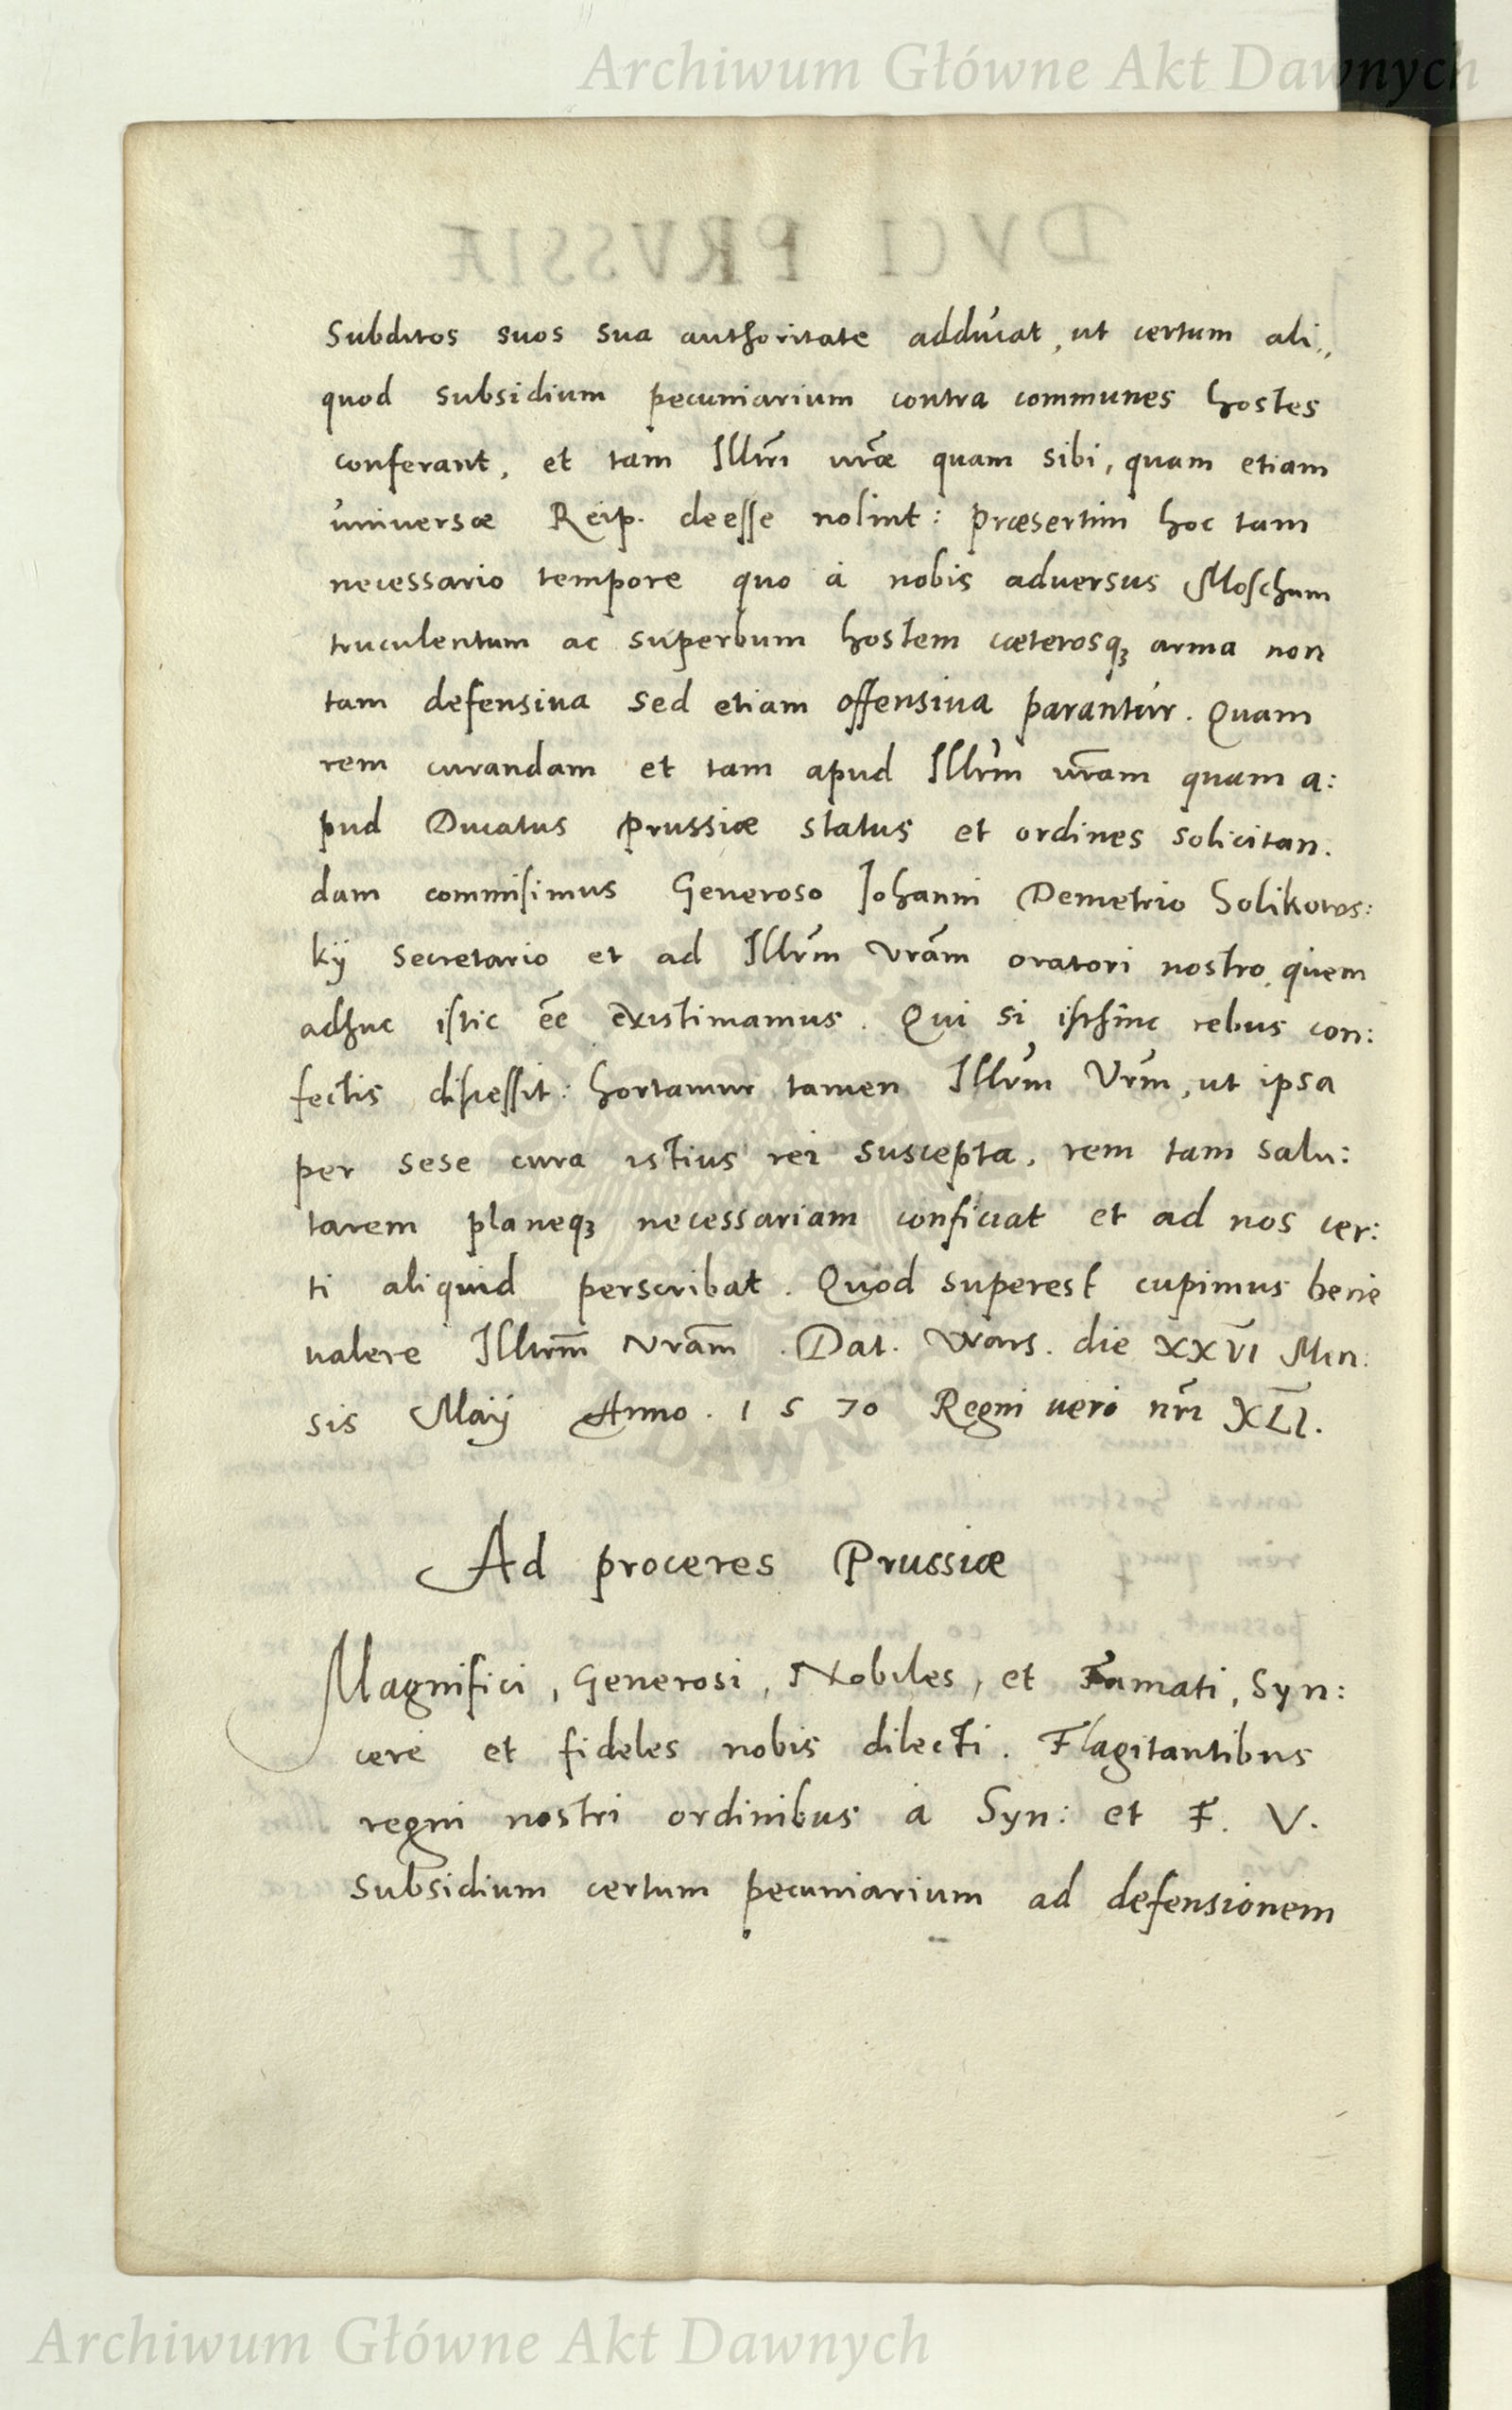 Archiwum Główne Akt Dawnych
Subditos suos sua authoritate adducat, ut certum ali„
quod subsidium pecuniarium contra communes hostes
conferant, et tam Illri vrae quam sibi, quam etiam
universae Reip. deesse nolint: praesertim hoc tam
necessario tempore quo à nobis adversus Moschum
truculentum ac superbum hostem caeterosq₃ arma non
tam defensiva sed etiam offensiva parantur. Quam
rem curandam et tam apud Illrm vram quam a:
pud Ducatus Prussiae status et ordines solicitan.
dam commisimus Generoso Iohanni Demetrio Solikows:
kÿ Secretario et ad Illrm Vram oratori nostro, quem
adhuc istic ēe existimamus. Qui si isthinc rebus con:
fectis discessit: hortamur tamen Illrm Vrm, ut ipsa
per sese cura istius rei suscepta, rem tam salu:
tarem planeq₃ necessariam conficiat et ad nos cer:
ti aliquid perscribat. Quod superest cupimus bene
valere Illrm̄ Vram̄. Dat. Wars. die XXVI Men:
sis Maÿ Anno. 1570 Regni vero nr̄i XLI.
Ad proceres Prussiae
Magnifici, Generosi, Nobiles, et Famati, Syn:
cere et fideles nobis dilecti. Flagitantibus
regni nostri ordinibus à Syn: et F. V.
subsidium certum pecuniarium ad defensionem
Archiwum Główne Akt Dawnych